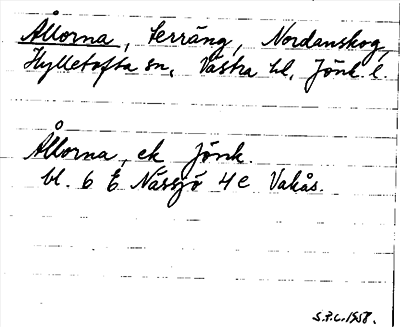 Ållorna, terräng, Nordanskog,
Hylletofta sn, Västra hd, Jönk. l.
Ållorna, ek Jönk.
bl. 6 E Nässjö 4e Vakås.
S.F.L. 1958.